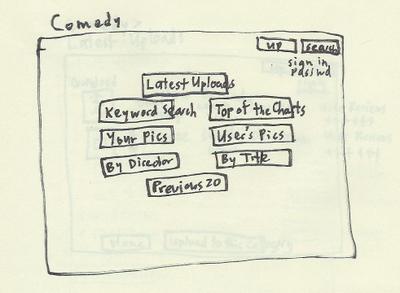 Comedy
up search
sign in,
passwd
Latest Uploads
Keyword Search Top of the Charts
Your Pics User's Pics
By Director By Title
Previous 20